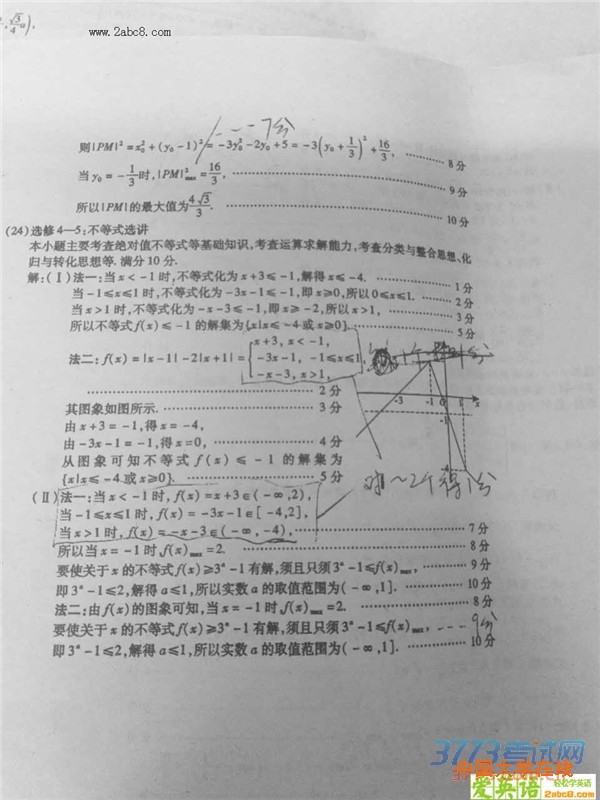 √3/4 a),
www.2abc8.com
---7分
则|PM|²=x₀²+(y₀-1)²=-3y₀²-2y₀+5=-3(y₀+1/3)²+16/3, ………… 8分
当y₀=-1/3时,|PM|²max=16/3, ………… 9分
所以|PM|的最大值为4√3/3. ………… 10分
(24)选修4—5:不等式选讲
本小题主要考查绝对值不等式等基础知识,考查运算求解能力,考查分类与整合思想、化
归与转化思想等.满分10分.
解:(Ⅰ)法一:当x<-1时,不等式化为x+3≤-1,解得x≤-4. ………… 1分
当-1≤x≤1时,不等式化为-3x-1≤-1,即x≥0,所以0≤x≤1. ………… 2分
当x>1时,不等式化为-x-3≤-1,即x≥-2,所以x>1, ………… 3分
所以不等式f(x)≤-1的解集为{x|x≤-4或x≥0}. ………… 5分
法二:f(x)=|x-1|-2|x+1|={x+3, x<-1,
-3x-1, -1≤x≤1,
-x-3, x>1,
………… 2分
其图象如图所示. ………… 3分
-3 -1 0 1 x
-1
-4
由x+3=-1,得x=-4,
由-3x-1=-1,得x=0, ………… 4分
从图象可知不等式f(x)≤-1的解集为
{x|x≤-4.或x≥0}. ………… 5分
对1~2个得1分
(Ⅱ)法一:当x<-1时,f(x)=x+3∈(-∞,2),
当-1≤x≤1时,f(x)=-3x-1∈[-4,2],
当x>1时,f(x)=-x-3∈(-∞,-4), ………… 7分
所以当x=-1时,f(x)max=2. ………… 8分
要使关于x的不等式f(x)≥3ᵃ-1有解,须且只须3ᵃ-1≤f(x)max, ………… 9分
即3ᵃ-1≤2,解得a≤1,所以实数a的取值范围为(-∞,1]. ………… 10分
法二:由f(x)的图象可知,当x=-1时,f(x)max=2. ………… 8分
要使关于x的不等式f(x)≥3ᵃ-1有解,须且只须3ᵃ-1≤f(x)max, ---9分
即3ᵃ-1≤2,解得a≤1,所以实数a的取值范围为(-∞,1]. ………… 10分
3773考试网
中国大学在线
爱英语 轻松学英语
2abc8.com